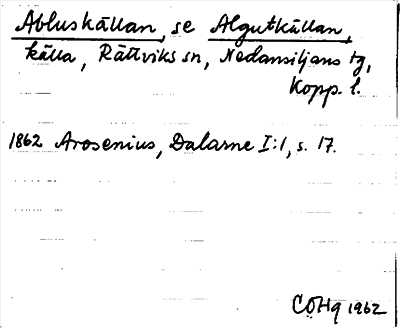 Abluskällan, se Algutkällan,
källa, Rättviks sn, Nedansiljans tg,
Kopp. l.
1862 Arosenius, Dalarne I:1, s. 17.
COHq 1962